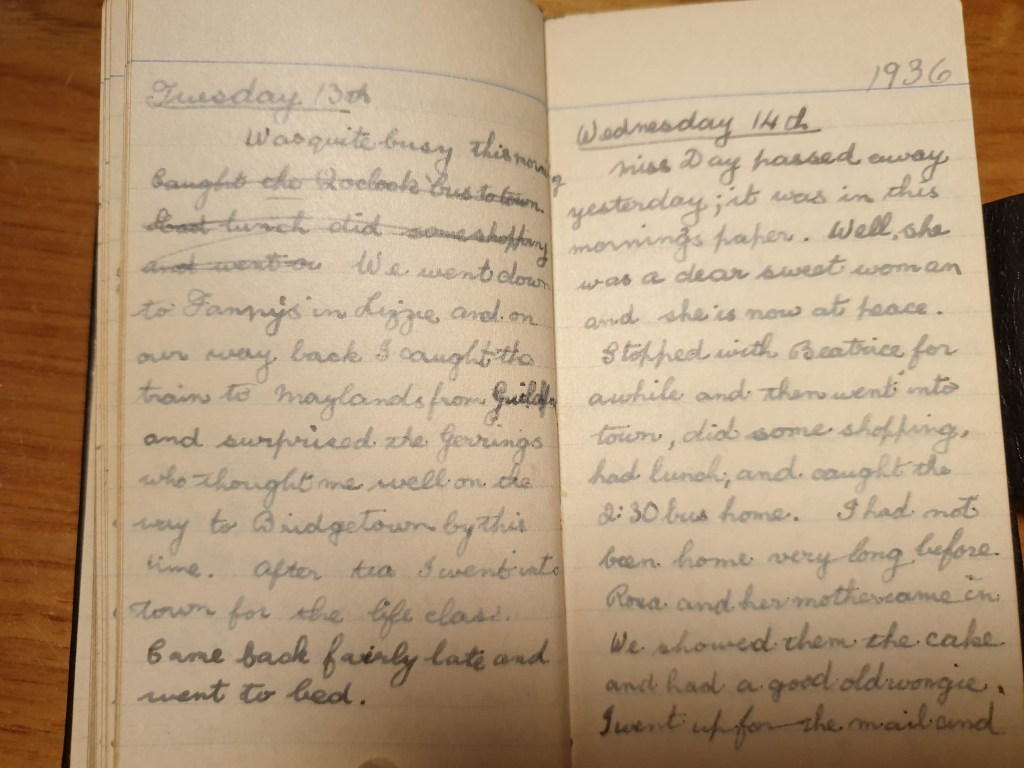 Tuesday 13th
Was quite busy this morning
Caught the 2 oclock bus to town.
Had lunch did some shopping
and went on We went down
to Fanny's in Lizzie and on
our way back I caught the
train to Maylands from Guildfo
and surprised the Gerrings
who thought me well on the
way to Bridgetown by this
time. After tea I went into
town for the life class.
Came back fairly late and
went to bed.
1936
Wednesday 14th
Miss Day passed away
yesterday; it was in this
mornings paper. Well, she
was a dear sweet woman
and she is now at peace.
Stopped with Beatrice for
awhile and then went into
town, did some shopping,
had lunch, and caught the
2:30 bus home. I had not
been home very long before
Rosa and her mother came in
We showed them the cake
and had a good old wongie.
I went up for the mail and